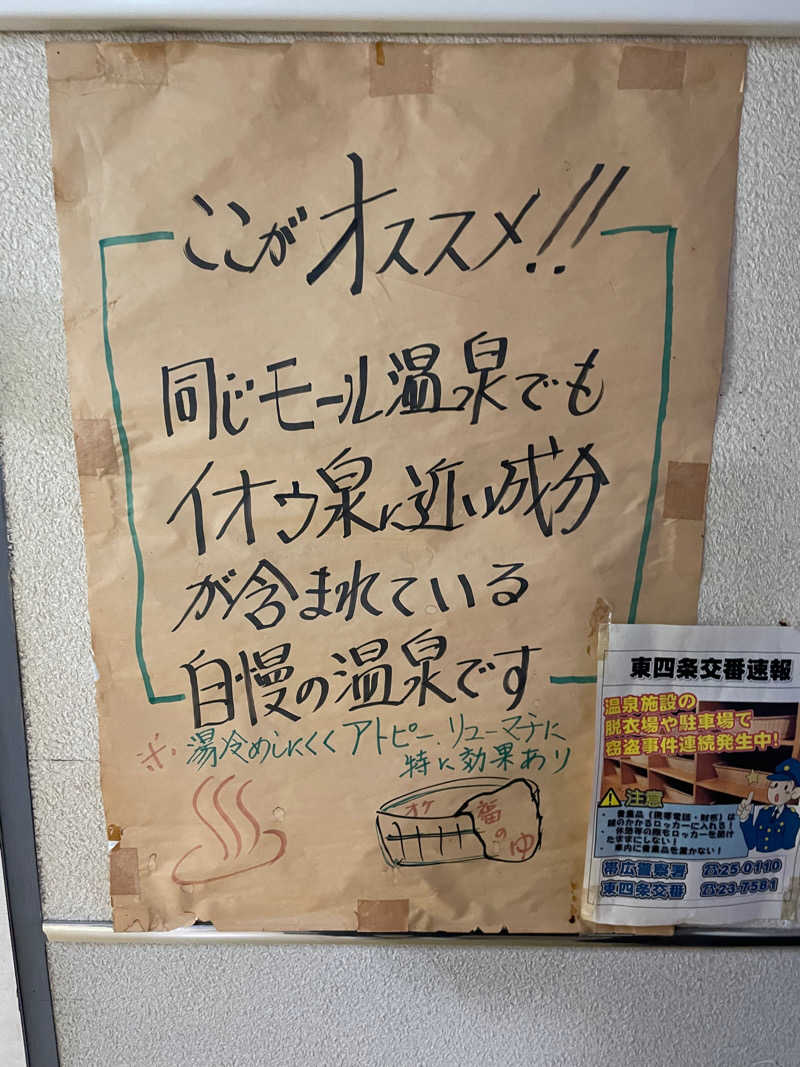 ここがオススメ!!
同じモール温泉でも
イオウ泉に近い成分
が含まれている
自慢の温泉です
※. 湯冷めしにくく アトピー. リューマチに
特に効果あり
オケ
福のゆ
東四条交番速報
温泉施設の
脱衣場や駐車場で
窃盗事件連続発生中!
注意
・貴重品(携帯電話・財布)は
鍵のかかるロッカーに入れる!
・休憩等の際もロッカーを開け
たままにしない!
・車内に貴重品を置かない!
帯広警察署 ☎25-0110
東四条交番 ☎23-7581